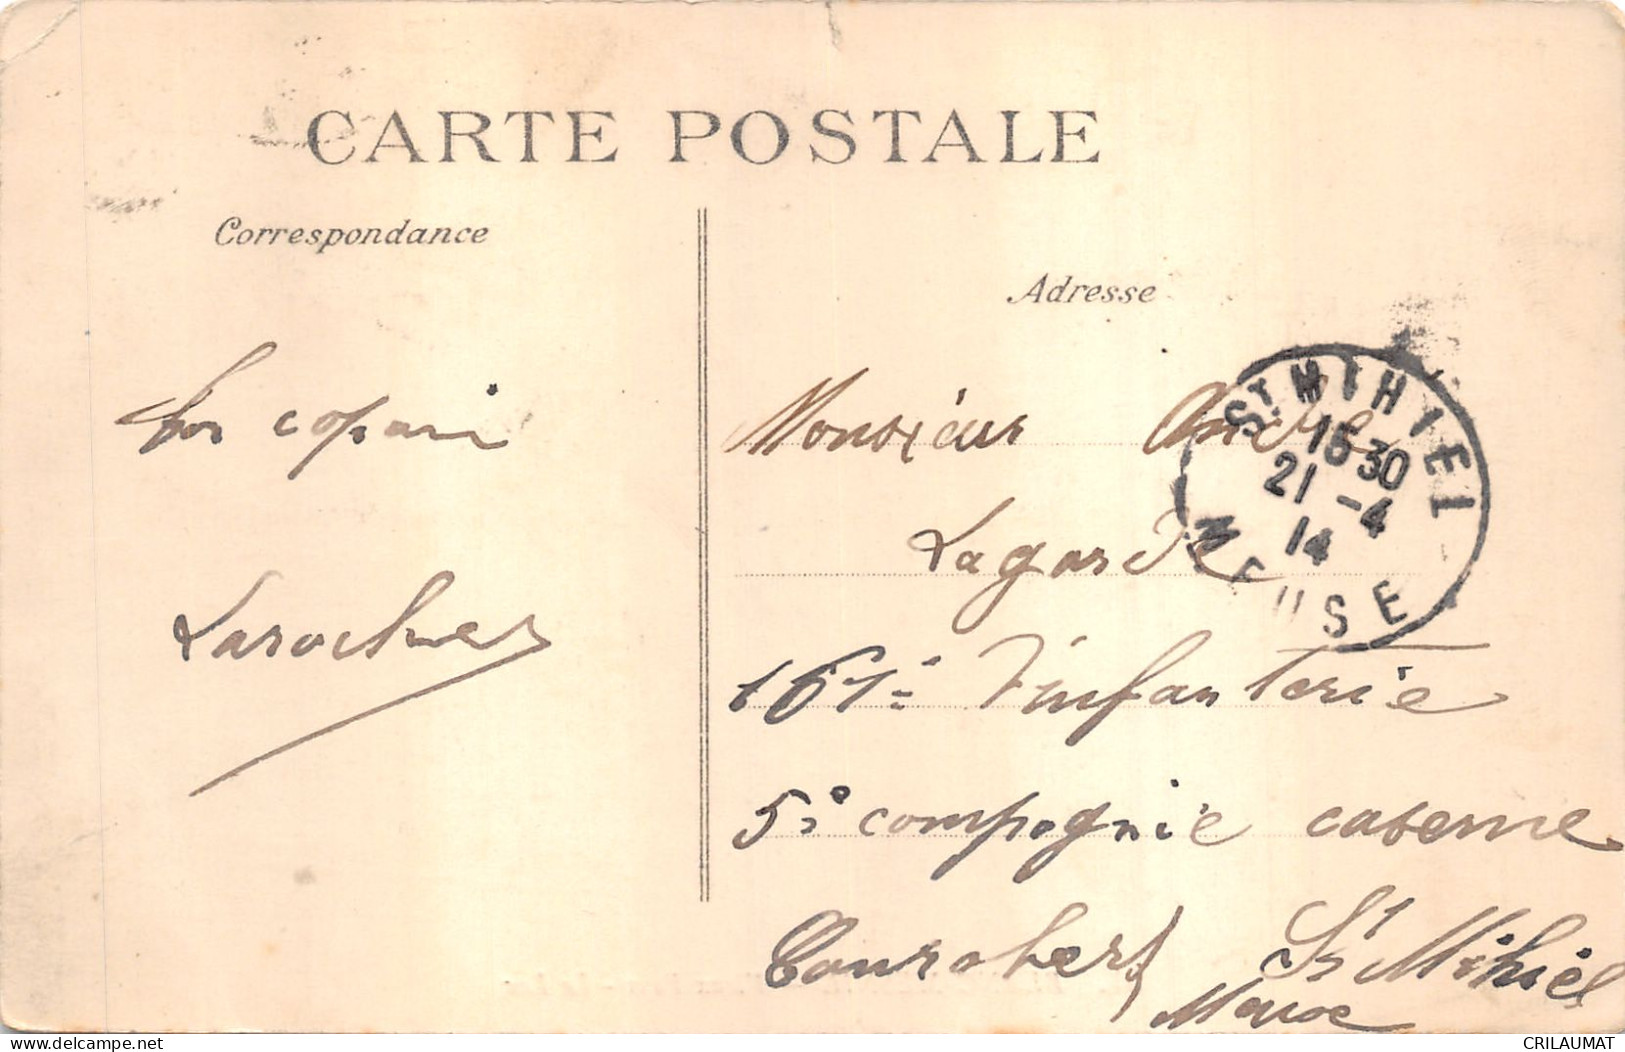 CARTE POSTALE
Correspondance
Adresse
Ton copain
Larocher
Monsieur André
Lagarde
161è d'infanterie
5è compagnie caserne
Canrobert St Mihiel
Meuse
ST MIHIEL
15 30
21 -4
14
MEUSE
delcampe.net
CRILAUMAT